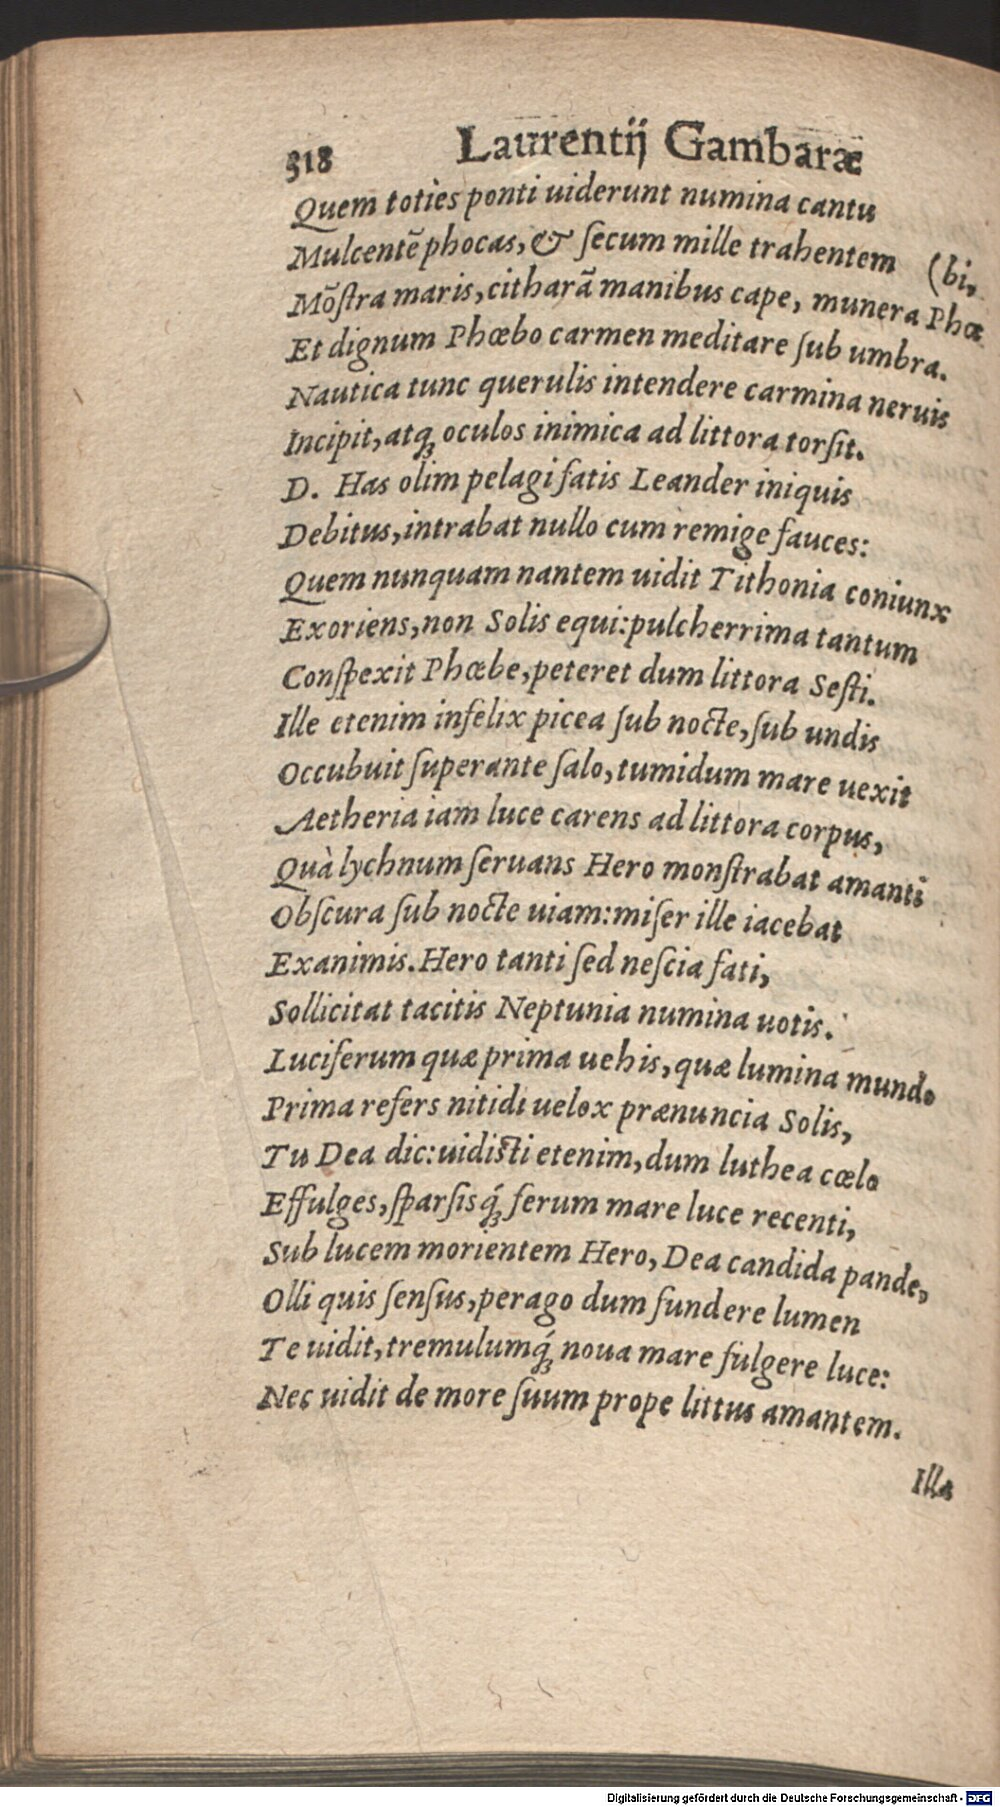 318 Laurentij Gambaræ
Quem toties ponti uiderunt numina cantu
Mulcentē phocas, & ſecum mille trahentem (bi,
Mōſtra maris, citharā manibus cape, munera Phœ
Et dignum Phœbo carmen meditare ſub umbra.
Nautica tunc querulis intendere carmina neruis
Incipit, atq; oculos inimica ad littora torſit.
D. Has olim pelagi fatis Leander iniquis
Debitus, intrabat nullo cum remige fauces:
Quem nunquam nantem uidit Tithonia coniunx
Exoriens, non Solis equi: pulcherrima tantum
Conſpexit Phœbe, peteret dum littora Seſti.
Ille etenim infelix picea ſub nocte, ſub undis
Occubuit ſuperante ſalo, tumidum mare uexit
Aetheria iam luce carens ad littora corpus,
Quà lychnum ſeruans Hero monſtrabat amanti
Obſcura ſub nocte uiam: miſer ille iacebat
Exanimis. Hero tanti ſed neſcia fati,
Sollicitat tacitis Neptunia numina uotis.
Luciferum quæ prima uehis, quæ lumina mundo
Prima refers nitidi uelox prænuncia Solis,
Tu Dea dic: uidisti etenim, dum luthea cœlo
Effulges, ſparſisq́; ferum mare luce recenti,
Sub lucem morientem Hero, Dea candida pande,
Olli quis ſenſus, perago dum fundere lumen
Te uidit, tremulumq́; noua mare fulgere luce:
Nec uidit de more ſuum prope littus amantem.
Illa
Digitalisierung gefördert durch die Deutsche Forschungsgemeinschaft - DFG